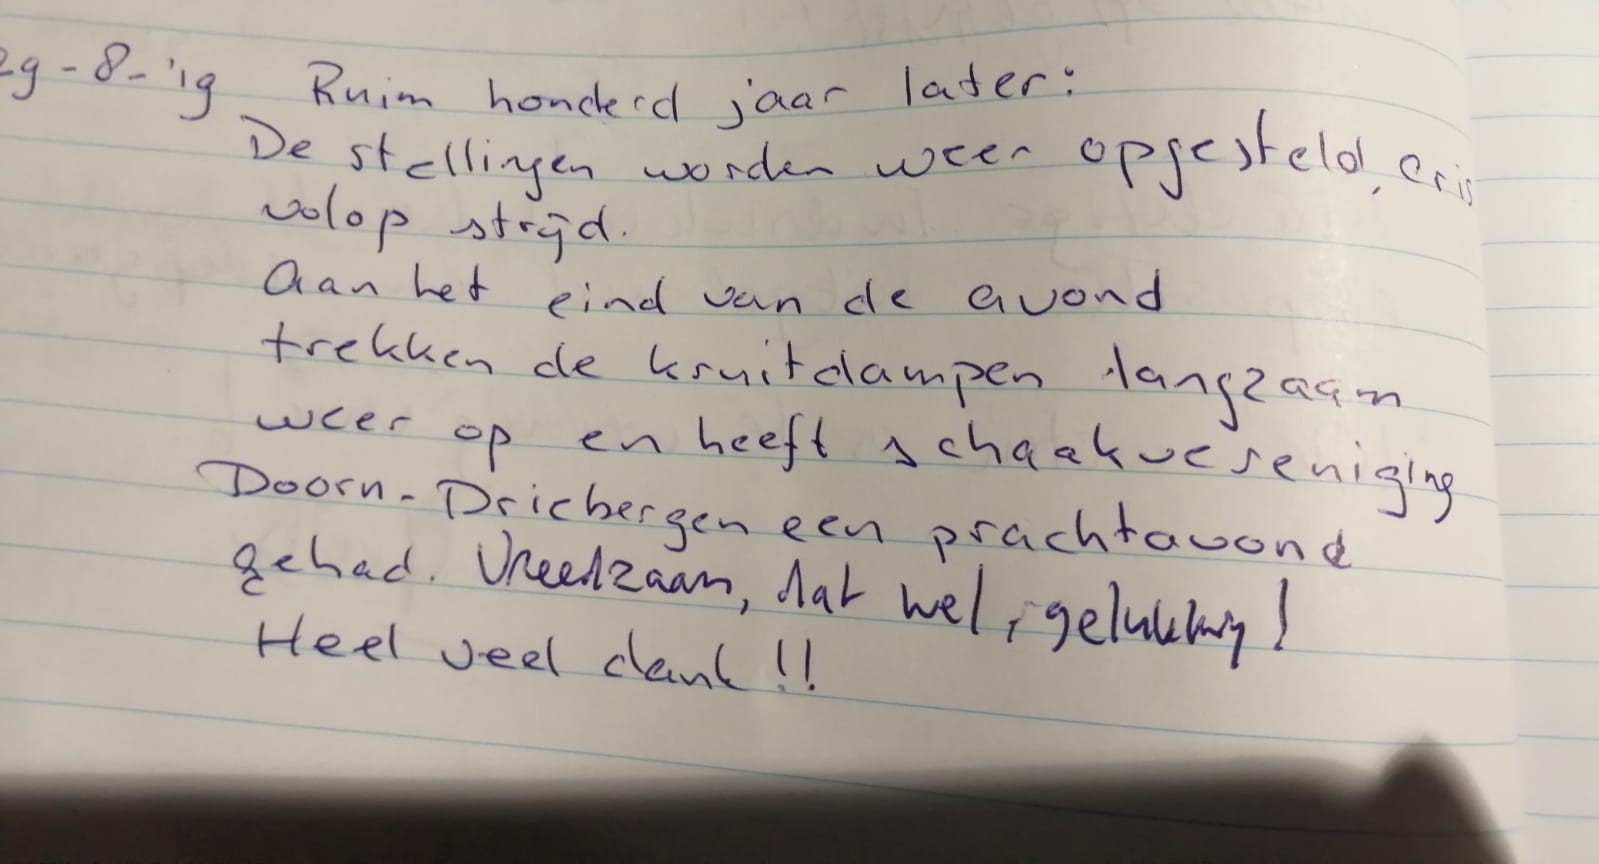 29-8-'19 Ruim honderd jaar later:
De stellingen worden weer opgesteld, er is
volop strijd.
Aan het eind van de avond
trekken de kruitdampen langzaam
weer op en heeft schaakvereniging
Doorn-Driebergen een prachtavond
gehad. Vreedzaam, dat wel, gelukkig!
Heel veel dank!!